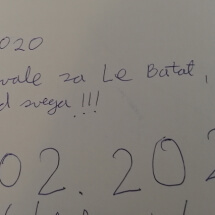 2020
vale za Le Batat,
d svega !!!
02.202